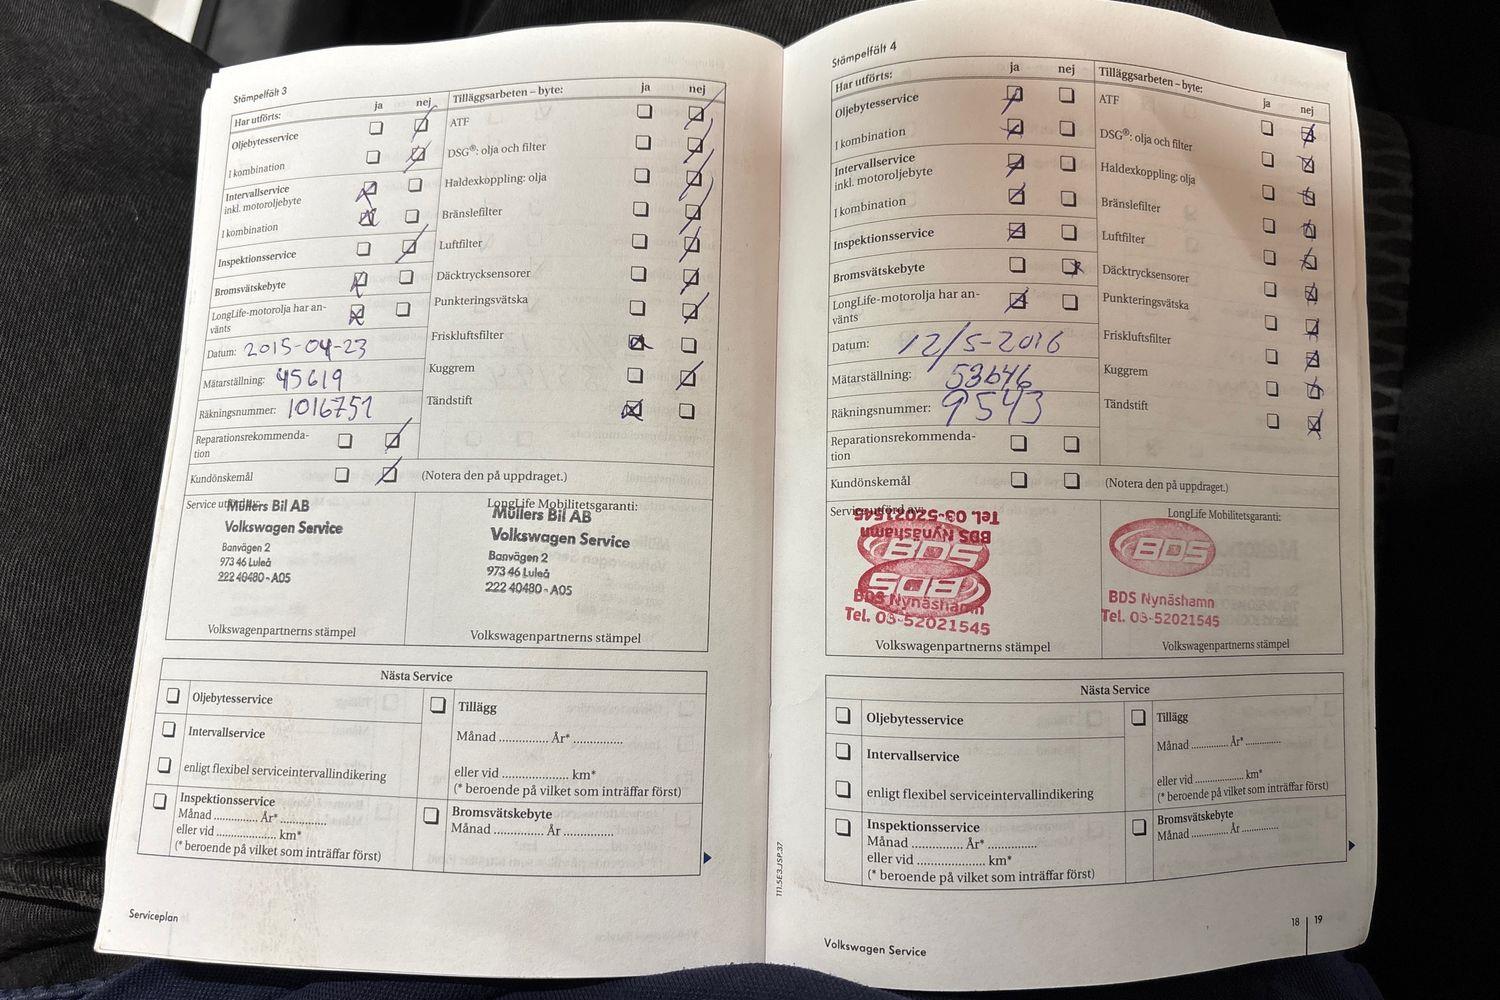 Stämpelfält 3
Har utförts: ja nej
Oljebytesservice
I kombination
Intervallservice
inkl. motoroljebyte
I kombination
Inspektionsservice
Bromsvätskebyte
LongLife-motorolja har an-
vänts
Datum: 2015-04-23
Mätarställning: 45619
Räkningsnummer: 1016751
Reparationsrekommenda-
tion
Kundönskemål
(Notera den på uppdraget.)
Tilläggsarbeten – byte: ja nej
ATF
DSG®: olja och filter
Haldexkoppling: olja
Bränslefilter
Luftfilter
Däcktrycksensorer
Punkteringsvätska
Friskluftsfilter
Kuggrem
Tändstift
Müllers Bil AB
Volkswagen Service
Banvägen 2
973 46 Luleå
222 40480 - A05
Volkswagenpartnerns stämpel
LongLife Mobilitetsgaranti:
Müllers Bil AB
Volkswagen Service
Banvägen 2
973 46 Luleå
222 40480 - A05
Volkswagenpartnerns stämpel
Nästa Service
Oljebytesservice
Intervallservice
enligt flexibel serviceintervallindikering
Inspektionsservice
Månad ............ År* .............
eller vid .................. km*
(* beroende på vilket som inträffar först)
Tillägg
Månad ............. År* .............
eller vid .................. km*
(* beroende på vilket som inträffar först)
Bromsvätskebyte
Månad ............. År .............
Serviceplan
Stämpelfält 4
Har utförts: ja nej
Oljebytesservice
I kombination
Intervallservice
inkl. motoroljebyte
I kombination
Inspektionsservice
Bromsvätskebyte
LongLife-motorolja har an-
vänts
Datum: 12/5-2016
Mätarställning: 53646
Räkningsnummer: 9543
Reparationsrekommenda-
tion
Kundönskemål
(Notera den på uppdraget.)
Tilläggsarbeten – byte: ja nej
ATF
DSG®: olja och filter
Haldexkoppling: olja
Bränslefilter
Luftfilter
Däcktrycksensorer
Punkteringsvätska
Friskluftsfilter
Kuggrem
Tändstift
Service utförd av:
Tel. 03-52021545
BDS Nynäshamn
BDS
BDS
BDS Nynäshamn
Tel. 03-52021545
Volkswagenpartnerns stämpel
LongLife Mobilitetsgaranti:
BDS
BDS Nynäshamn
Tel. 03-52021545
Volkswagenpartnerns stämpel
Nästa Service
Oljebytesservice
Intervallservice
enligt flexibel serviceintervallindikering
Inspektionsservice
Månad ............. År* .............
eller vid .................. km*
(* beroende på vilket som inträffar först)
Tillägg
Månad ............. År* .............
eller vid .................. km*
(* beroende på vilket som inträffar först)
Bromsvätskebyte
Månad ............. År .............
111.5E3.JSP.37
Volkswagen Service
18 | 19